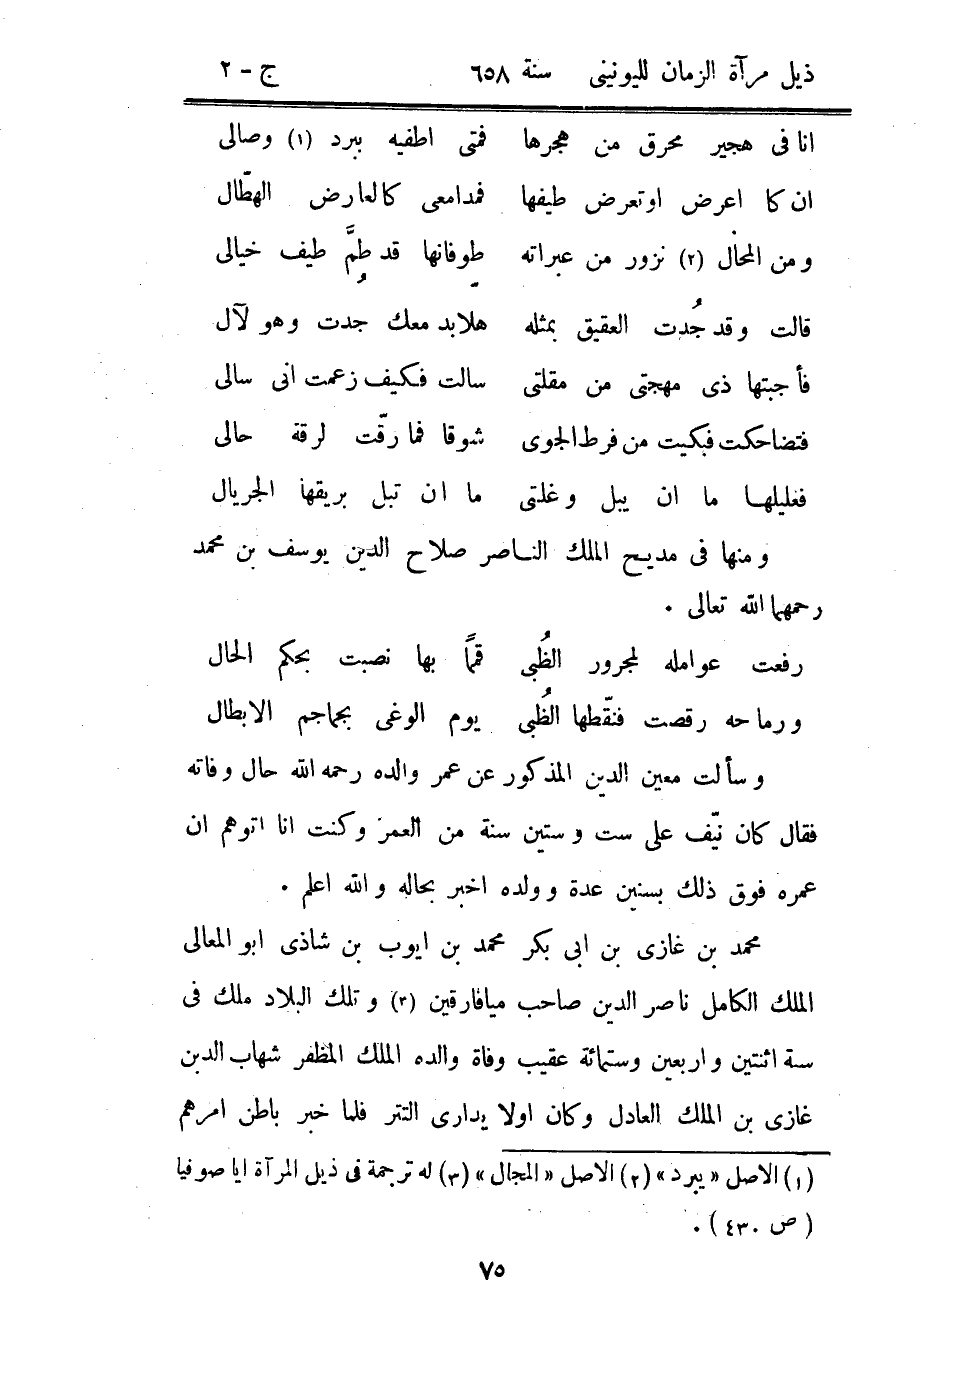 ذيل مرآة الزمان لليونينى سنة ٦٥٨ ج - ٢
انا فى هجير محرق من هجرها فمتى اطفيه ببرد (١) وصالى
ان كا اعرض او تعرض طيفها فمدامعى كالعارض الهطّال
ومن المحال (٢) نزور من عبراته طوفانها قد طمَّ طيف خيالى
قالت وقد جُدت العقيق بمثله هلابد معك جدت وهو لآل
فأجبتها ذى مهجتى من مقلتى سالت فكيف زعمت انى سالى
فتضاحكت فبكيت من فرط الجوى شوقا فما رقّت لرقة حالى
فغليلها ما ان يبل وغلتى ما ان تبل بريقها الجريال
ومنها فى مديح الملك الناصر صلاح الدين يوسف بن محمد
رحمهما الله تعالى .
رفعت عوامله لمجرور الظُبى قمًا بها نصبت بحكم الحال
ورماحه رقصت فنقّطها الظُبى يوم الوغى بجماجم الابطال
وسألت معين الدين المذكور عن عمر والده رحمه الله حال وفاته
فقال كان نيّف على ست وستين سنة من العمر وكنت انا اتوهم ان
عمره فوق ذلك بسنين عدة وولده اخبر بحاله والله اعلم .
محمد بن غازى بن ابى بكر محمد بن ايوب بن شاذى ابو المعالى
الملك الكامل ناصر الدين صاحب ميافارقين (٣) وتلك البلاد ملك فى
سنة اثنتين واربعين وستمائة عقيب وفاة والده الملك المظفر شهاب الدين
غازى بن الملك العادل وكان اولا يدارى التتر فلما خبر باطن امرهم
(١) الاصل « يبرد » (٢) الاصل « المجال » (٣) له ترجمة فى ذيل المرآة ايا صوفيا
(ص ٤٣٠) .
٧٥